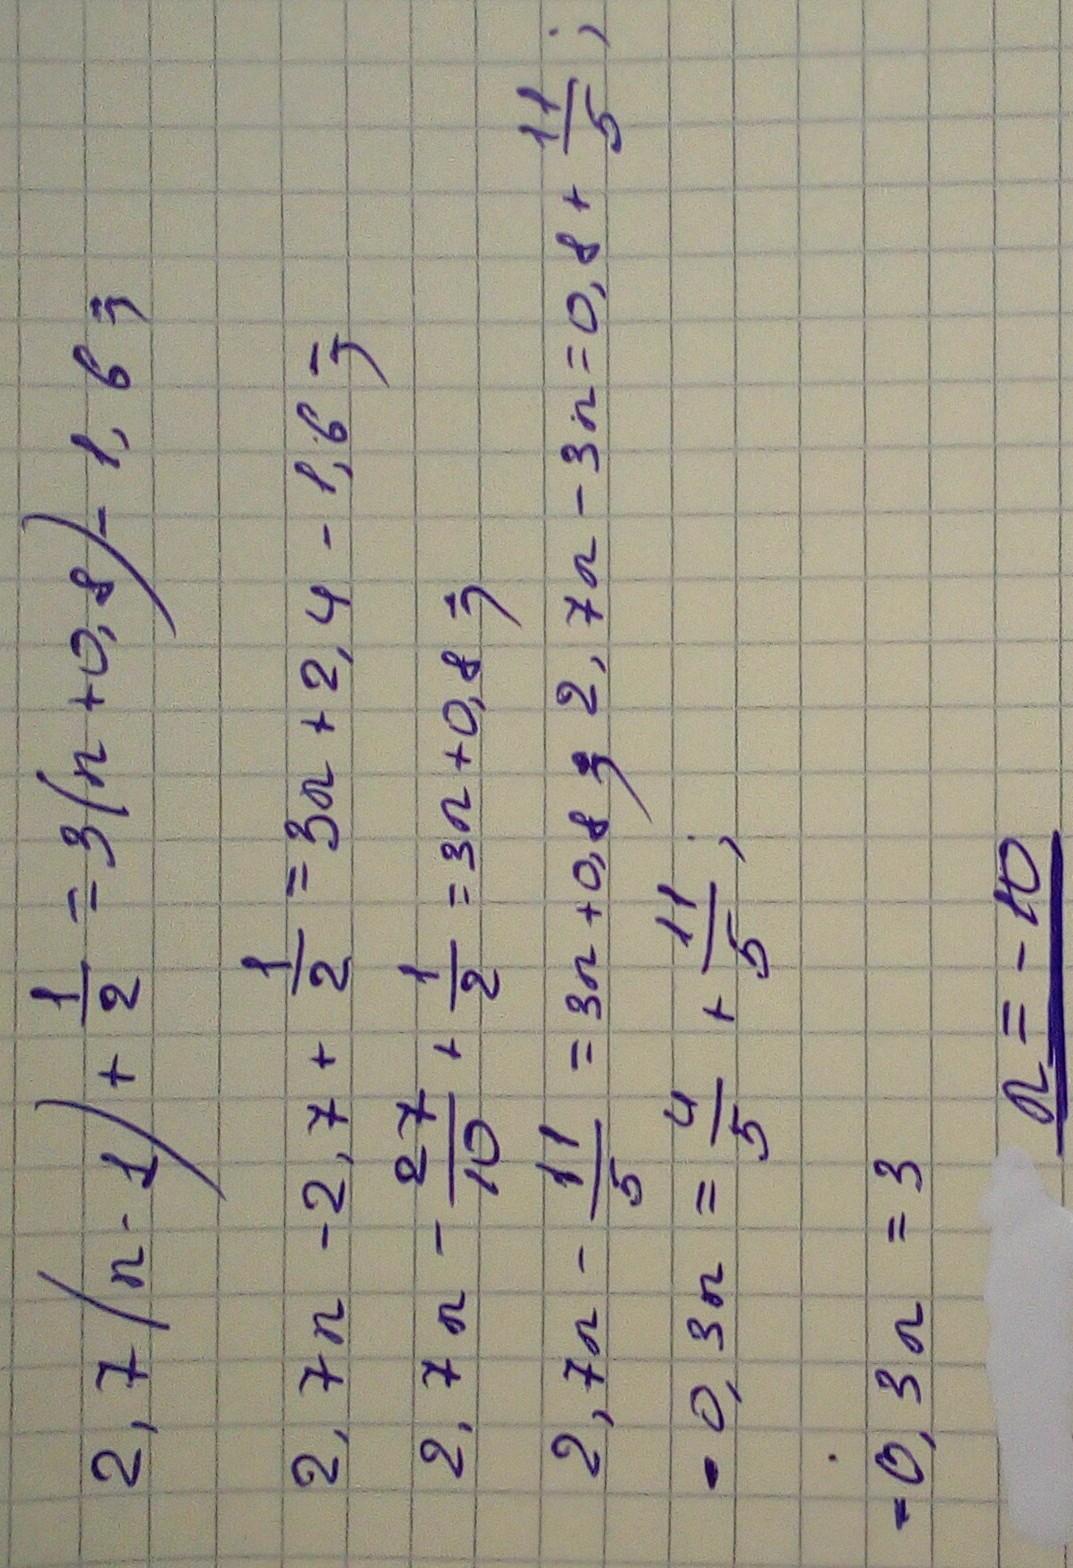 2,7(n-1)+1/2=3(n+0,8)-1,6;
2,7n-2,7+1/2=3n+2,4-1,6;
2,7n-27/10+1/2=3n+0,8;
2,7n-11/5=3n+0,8; 2,7n-3n=0,8+11/5;
-0,3n=4/5+11/5;
-0,3n=3
n=-10